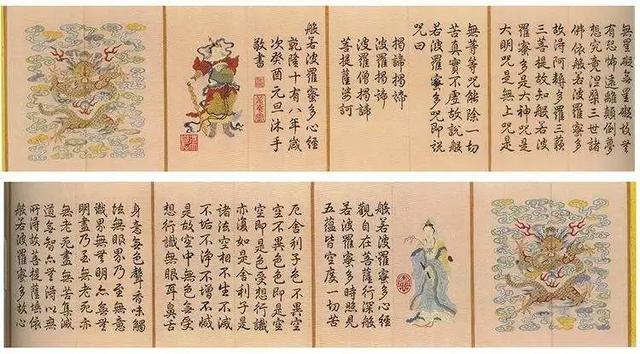 般若波羅蜜多心經
觀自在菩薩行深般
若波羅蜜多時照見
五蘊皆空度一切苦
厄舍利子色不異空
空不異色色即是空
空即是色受想行識
亦復如是舍利子是
諸法空相不生不滅
不垢不淨不增不減
是故空中無色無受
想行識無眼耳鼻舌
身意無色聲香味觸
法無眼界乃至無意
識界無無明亦無無
明盡乃至無老死亦
無老死盡無苦集滅
道無智亦無得以無
所得故菩提薩埵依
般若波羅蜜多故心
無罣礙無罣礙故無
有恐怖遠離顛倒夢
想究竟涅槃三世諸
佛依般若波羅蜜多
故得阿耨多羅三藐
三菩提故知般若波
羅蜜多是大神咒是
大明咒是無上咒是
無等等咒能除一切
苦真實不虛故說般
若波羅蜜多咒即說
咒曰
揭諦揭諦
波羅揭諦
波羅僧揭諦
菩提薩婆訶
般若波羅蜜多心經
乾隆十有八年歲
次癸酉元旦沐手
敬書